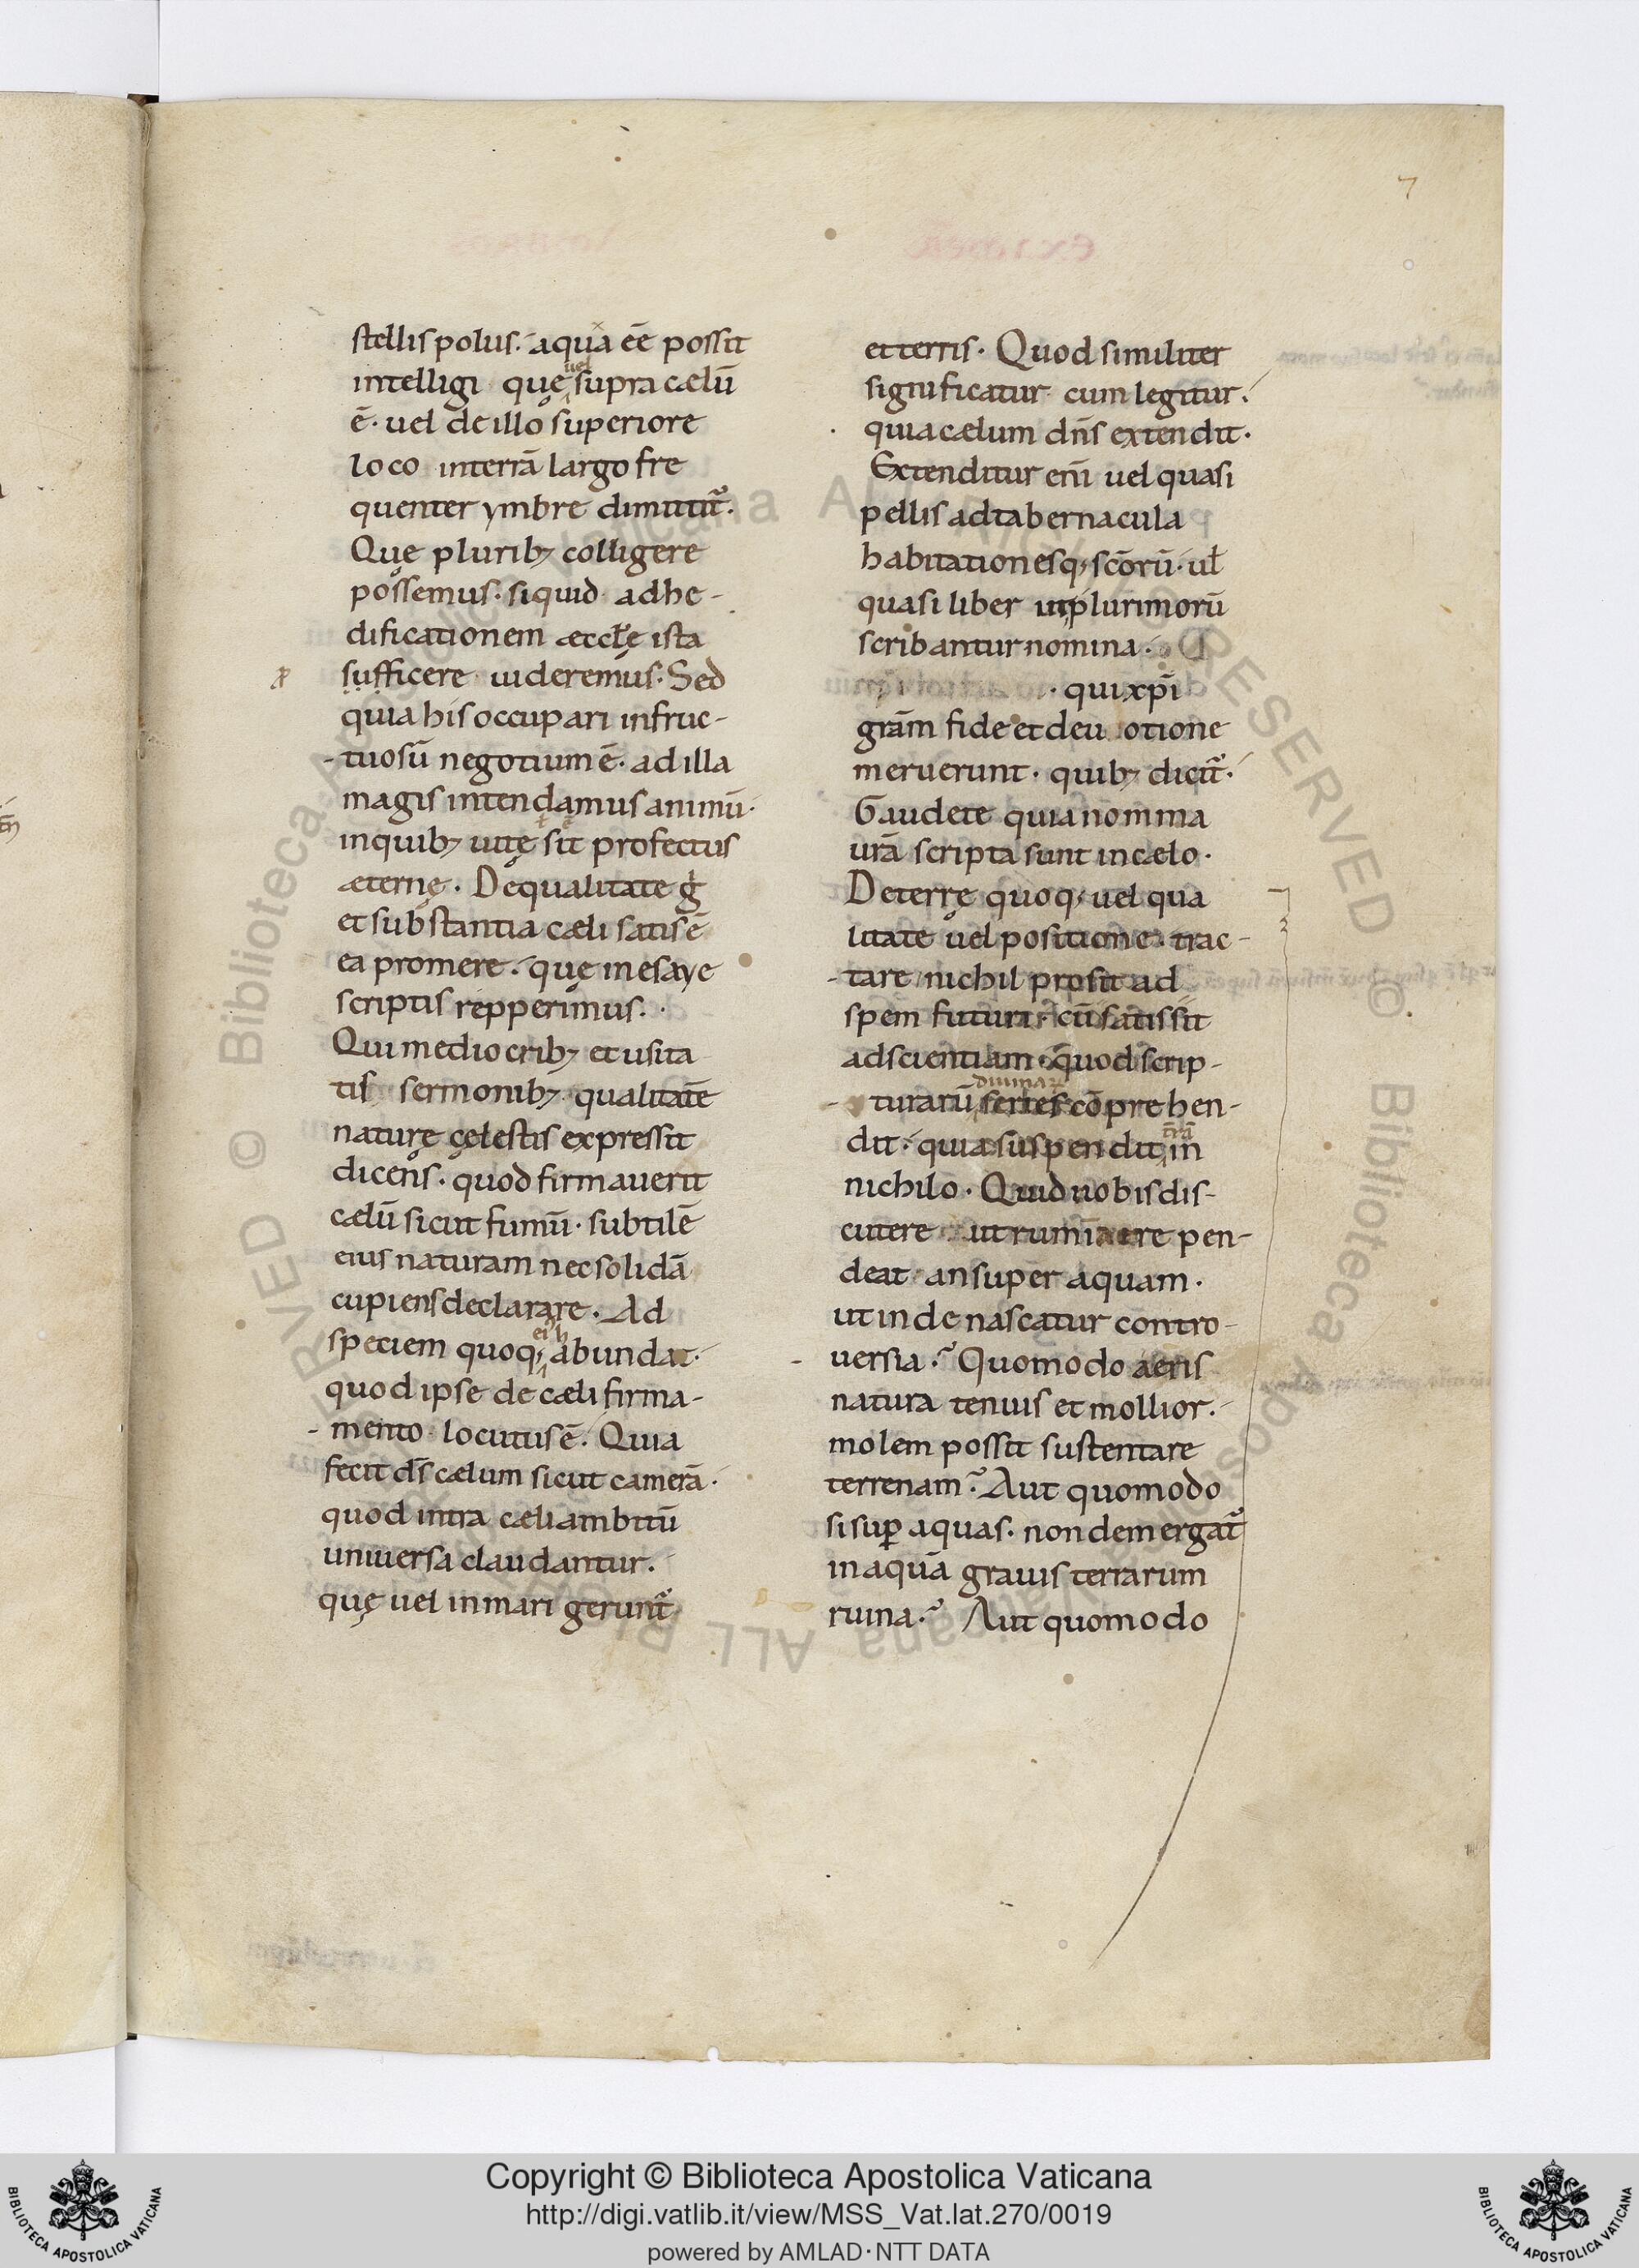 7
stellis polus. aqua eē possit
intelligi quę uel supra cælū
ē. uel de illo superiore
loco interrā largo fre
quenter ymbre dimittit̄.
Quę plurib; colligere
possemus. siquid adhe-
dificationem æccłę ista
sufficere uideremus. Sed
quia his occupari infruc-
-tuosū negotium ē. ad illa
magis intendamus animū.
inquib; uitę sit profectus
æternę. De qualitate g̍
et substantia cæli satis ē
ea promere. quę in esaye
scriptis repperimus.
Qui mediocrib; et usita
tis sermonib; qualitatē
naturę cęlestis expressit
dicens. quod firmauerit
cælū sicut fumū. subtilē
eius naturam nec solidā
cupiens declarare. Ad
speciem quoq; ei abundat.
quod ipse de cæli firma-
-mento locutus ē. Quia
fecit d̄s cælum sicut camerā.
quod intra cæli ambitū
uniuersa claudantur.
quę uel in mari gerunt̄
et terris. Quod similiter
significatur cum legitur.
quia cælum dn̄s extendit.
Extenditur eni̅ uel quasi
pellis ad tabernacula
habitationesq; sc̄orū. ul̵
quasi liber ut plurimorū
scribantur nomina.
qui xp̄i
grām fide et deuotione
meruerunt. quib; dicit̄.
Gaudete quia nomina
ur̄a scripta sunt in cælo.
De terrę quoq; uel qua
litate uel positione. trac-
-tare nichil prosit ad
spem futuri. cū satis sit
ad scientiam. quod scrip-
diuinar̄
turarū series cōprehen-
dit. quia suspendit tr̄ā in
nichilo. Quid nobis dis-
cutere utrum ī aere pen-
deat an super aquam.
ut inde nascatur contro-
uersia. Quomodo aeris
natura tenuis et mollior.
molem possit sustentare
terrenam. Aut quomodo
si sup̱ aquas. non demergat̄
in aquā grauis terrarum
ruina. Aut quomodo
Copyright © Biblioteca Apostolica Vaticana
http://digi.vatlib.it/view/MSS_Vat.lat.270/0019
powered by AMLAD·NTT DATA
BIBLIOTECA APOSTOLICA VATICANA
BIBLIOTECA APOSTOLICA VATICANA